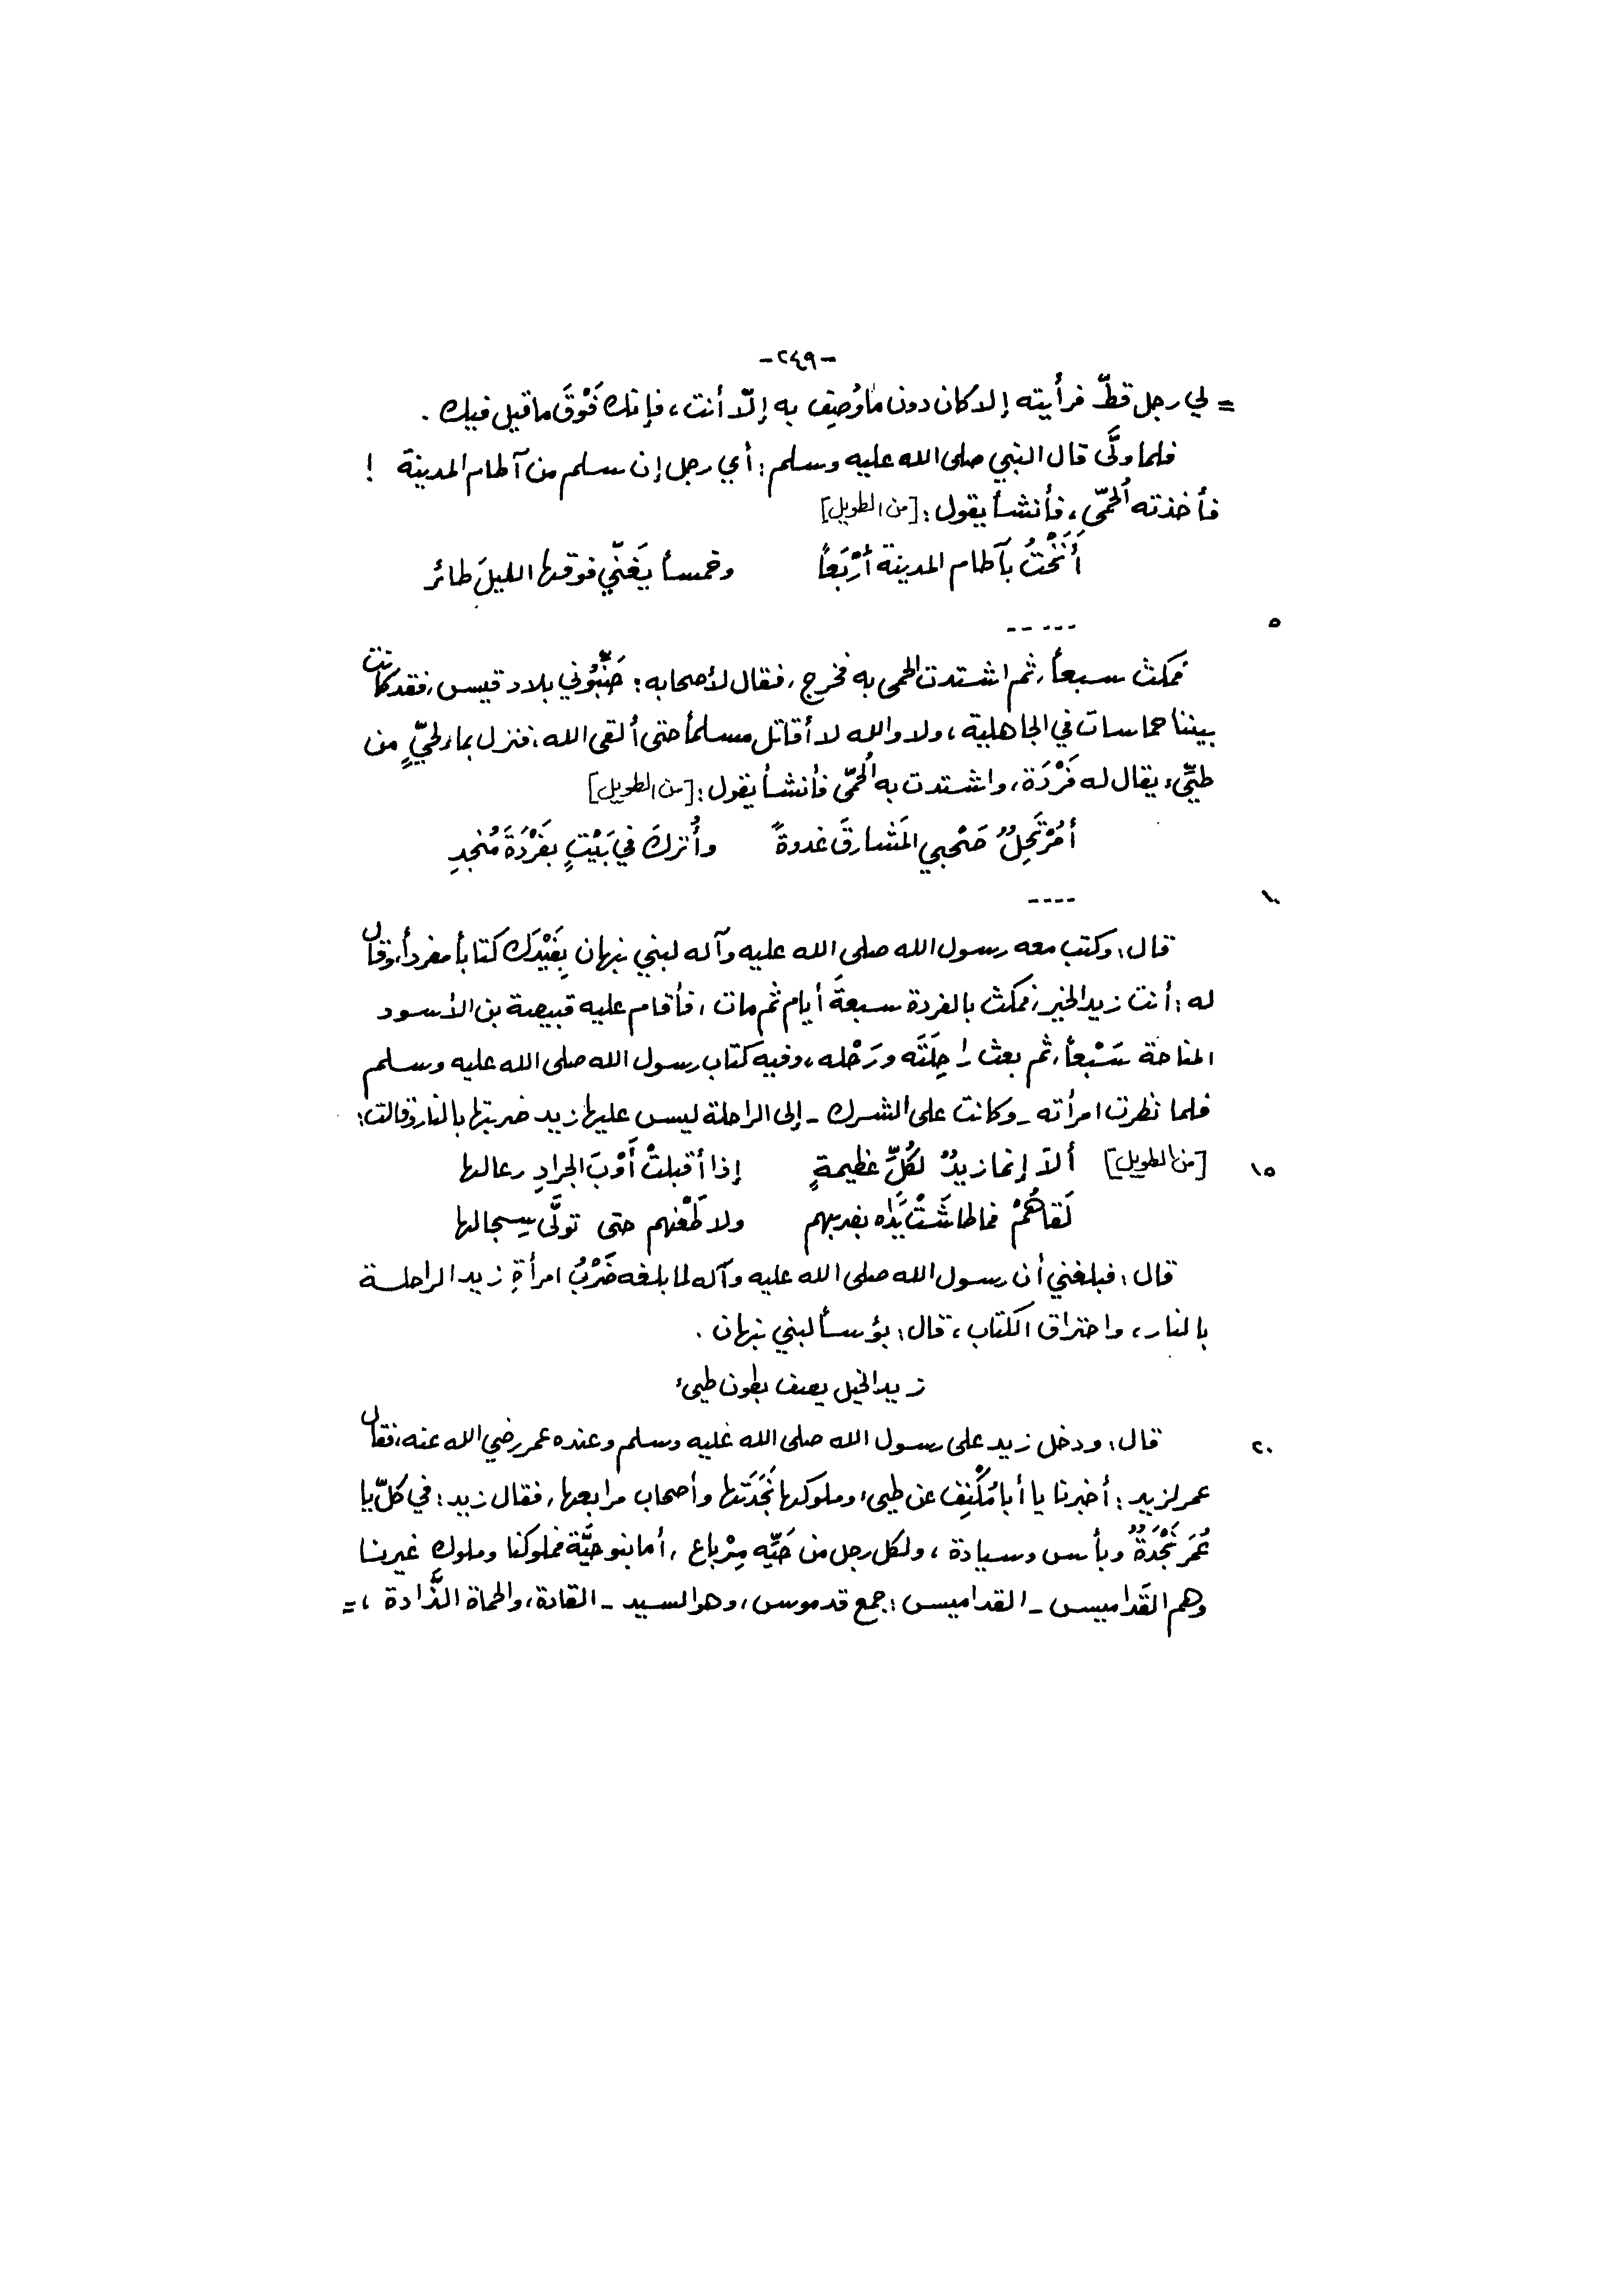 -٢٤٩-
= لي رجل قطّ فرأيته إلا كان دون ما وُصِف به إلّا أنت، فإنك فَوْقَ ما قيل فيك .
فلما ولَّى قال النبي صلى الله عليه وسلم: أي رجل إن سلم من آطام المدينة !
فأخذته الحُمّى، فأنشأ يقول: [من الطويل]
أَنَخْتُ بآطام المدينة أرْبَعاً وخمساً يَغَنّي فوقها الليلَ طائر
-----
٥
فمكث سبعاً، ثم اشتدت الحمى به فخرج، فقال لأصحابه: جَنِّبُوني بلاد قيس، فقد كانت
بيننا حماسات في الجاهلية، ولا والله لا أقاتل مسلماً حتى ألقى الله، فنزل بماء لحيٍّ من
طيِّء يقال له فَرْدَة، واشتدت به الحُمّى فأنشأ يقول: [من الطويل]
أمُرْتَحِلٌ صَحْبي المَشارقَ غدوةً وأُتركَ في بَيْتٍ بفَرْدَةَ مُنجدِ
----
١٠
قال: وكتب معه رسول الله صلى الله عليه وآله لبني نبهان بِفَيْدَك كتاباً مفرداً، وقال
له: أنت زيد الخير، فمكث بالفردة سبعةَ أيام ثم مات، فأقام عليه قبيصة بن الأسود
المناحة سَبْعاً، ثم بعث راحِلَتَه ورَحْله، وفيه كتاب رسول الله صلى الله عليه وسلم
فلما نظرت امرأته - وكانت على الشرك - إلى الراحلة ليس عليها زيد ضربتها بالنار وقالت:
١٥
[من الطويل] ألاَ إنما زيدٌ لكُلِّ عَظيمةٍ إذا أقبلتْ أَوْبَ الجرادِ رعالها
لَقاهُمْ فما طاشَتْ يَداه بضربهم ولا طَعْنهم حتى تولَّى سِجالها
قال: فبلغني أن رسول الله صلى الله عليه وآله لما بلغه ضَرْبُ امرأةِ زيد الراحلة
بالنار، واحتراق الكتاب، قال: بؤساً لبني نبهان .
زيد الخيل يصف بطون طيىء
٢٠
قال: ودخل زيد على رسول الله صلى الله عليه وسلم وعنده عمر رضي الله عنه، فقال
عمر لزيد: أخبرنا يا أبا مُكْنِف عن طيىء وملوكها نَجَدَتها وأصحاب مرابعها، فقال زيد: في كلّ يا
عُمَر نَجْدَةٌ وبأس وسيادة، ولكل رجل من حَيِّه مِرْباع، أما بنو حَيَّة فملوكنا وملوك غيرنا
وهم القَداميس - القداميس: جمع قدموس، وهو السيد - القادة، والحماة الذَّادة، =